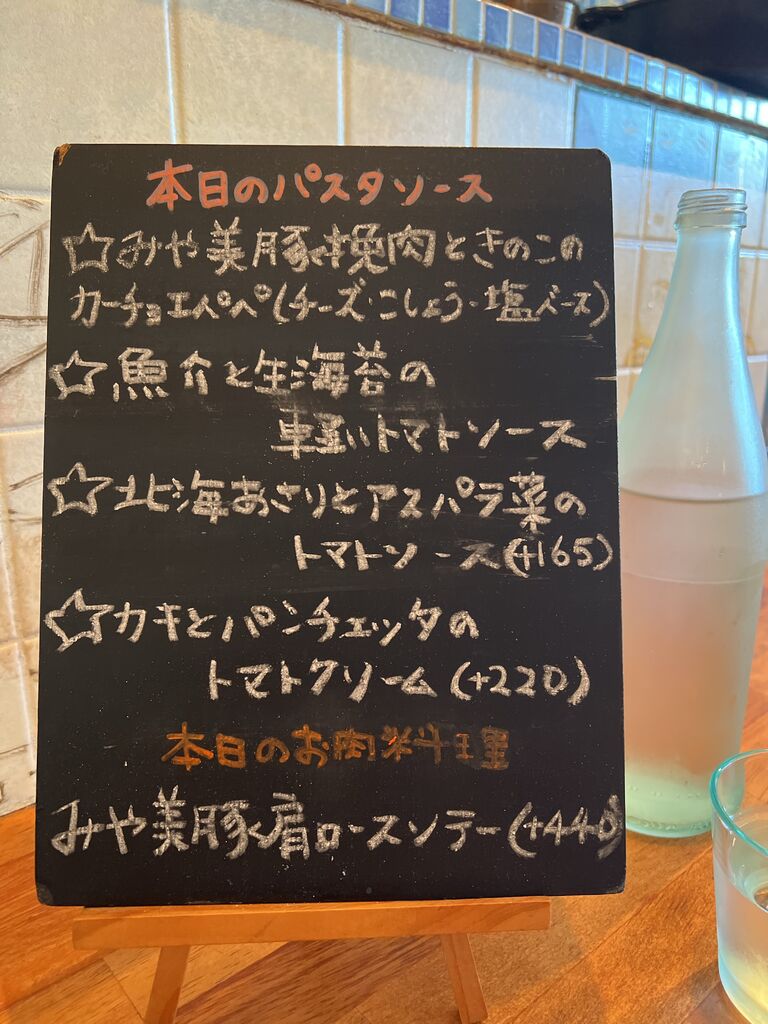 本日のパスタソース
☆みや美豚挽肉ときのこの
カーチョエペペ(チーズ・こしょう・塩ベース)
☆魚介と生海苔の
軽いトマトソース
☆北海あさりとアスパラ菜の
トマトソース(+165)
☆カキとパンチェッタの
トマトクリーム(+220)
本日のお肉料理
みや美豚肩ロースソテー(+440)